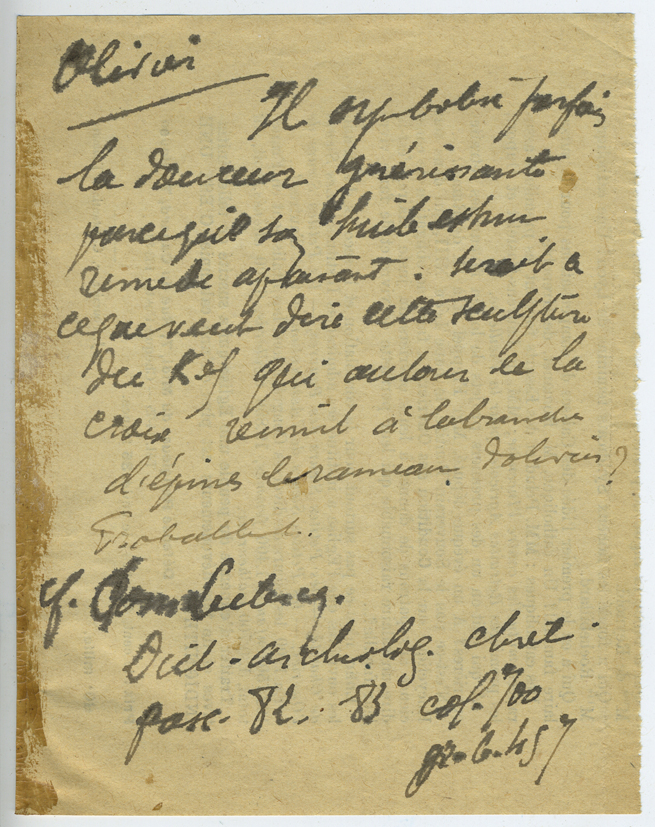 Olivier
Il symbolise parfois
la douceur guérissante
parcequil sa huile est un
remede apaisant. serait ce
ceque veut dire cette sculpture
du qui autour de la
croix reunit à la branche
d'épines le rameau d'olivier?
cf. Dom Leclercq.
Dict. archeolog. chret.
fasc. 82. 83 col. 700